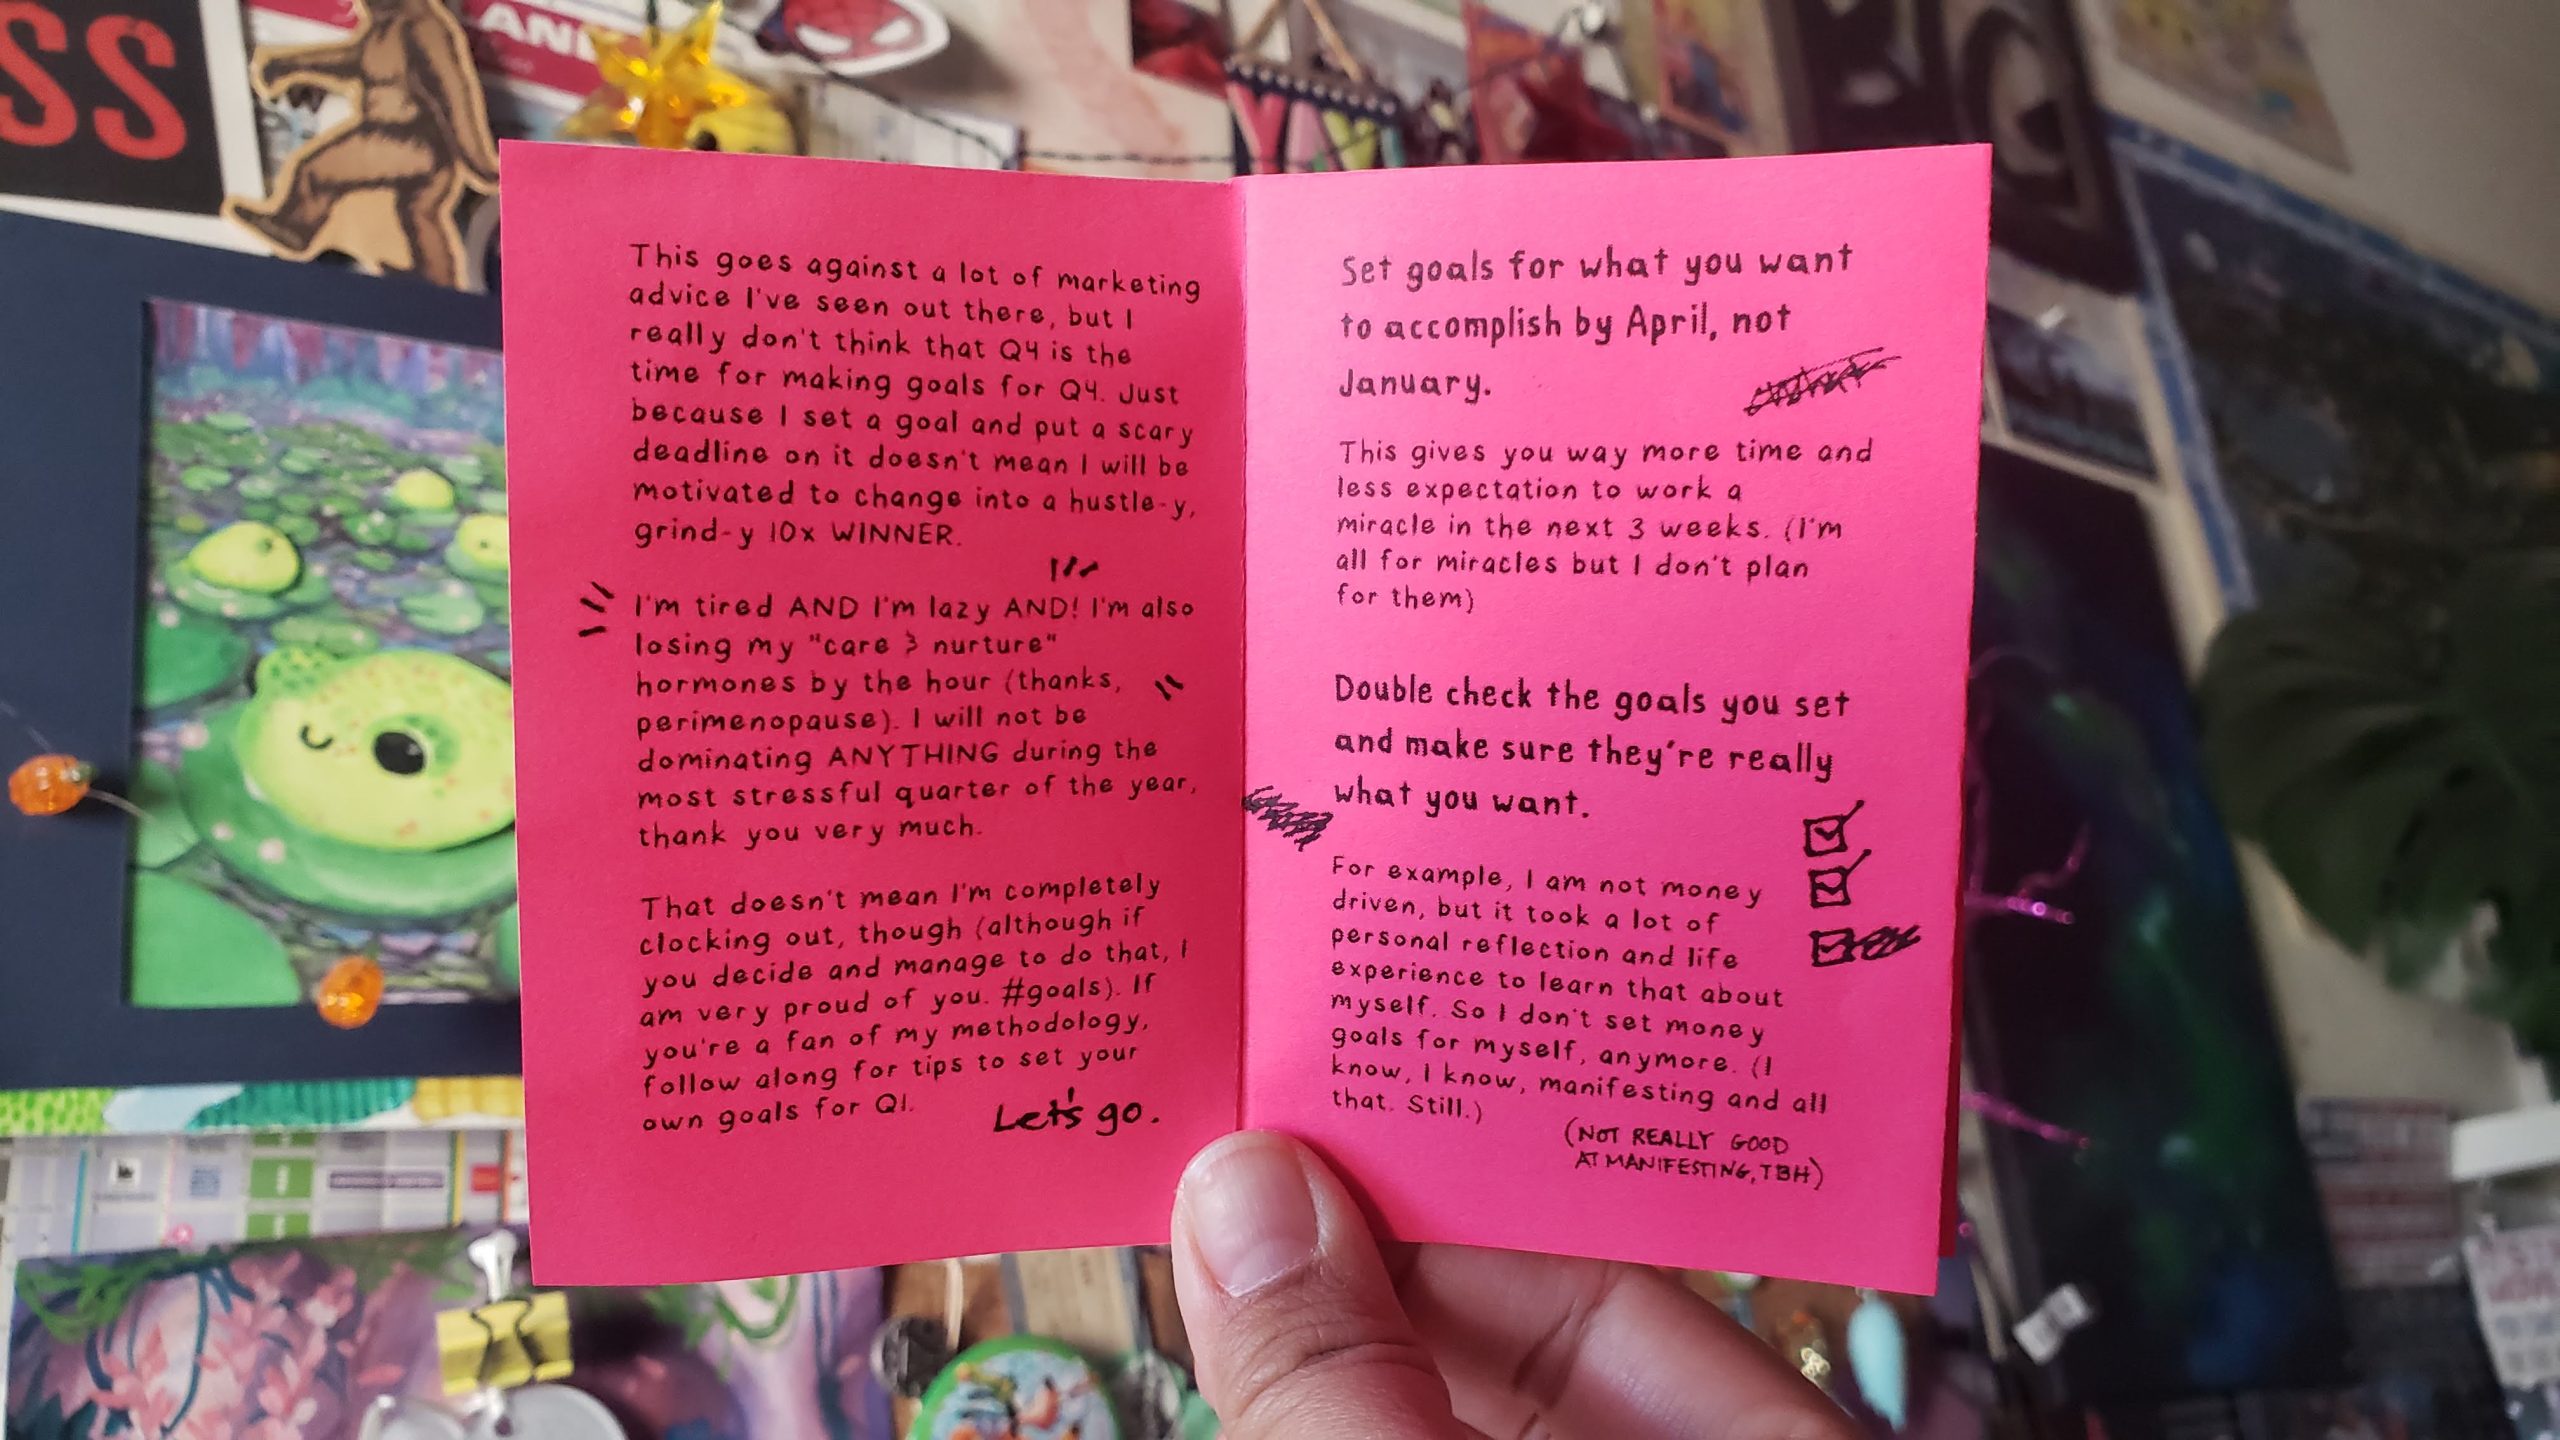 SS
This goes against a lot of marketing
advice I've seen out there, but I
really don't think that Q4 is the
time for making goals for Q4. Just
because I set a goal and put a scary
deadline on it doesn't mean I will be
motivated to change into a hustle-y,
grind-y 10x WINNER.
I'm tired AND I'm lazy AND! I'm also
losing my "care & nurture"
hormones by the hour (thanks,
perimenopause). I will not be
dominating ANYTHING during the
most stressful quarter of the year,
thank you very much.
That doesn't mean I'm completely
clocking out, though (although if
you decide and manage to do that, I
am very proud of you. #goals). If
you're a fan of my methodology,
follow along for tips to set your
own goals for Q1.
Let's go.
Set goals for what you want
to accomplish by April, not
January.
This gives you way more time and
less expectation to work a
miracle in the next 3 weeks. (I'm
all for miracles but I don't plan
for them)
Double check the goals you set
and make sure they're really
what you want.
For example, I am not money
driven, but it took a lot of
personal reflection and life
experience to learn that about
myself. So I don't set money
goals for myself, anymore. (I
know, I know, manifesting and all
that. Still.)
(NOT REALLY GOOD
AT MANIFESTING, TBH)